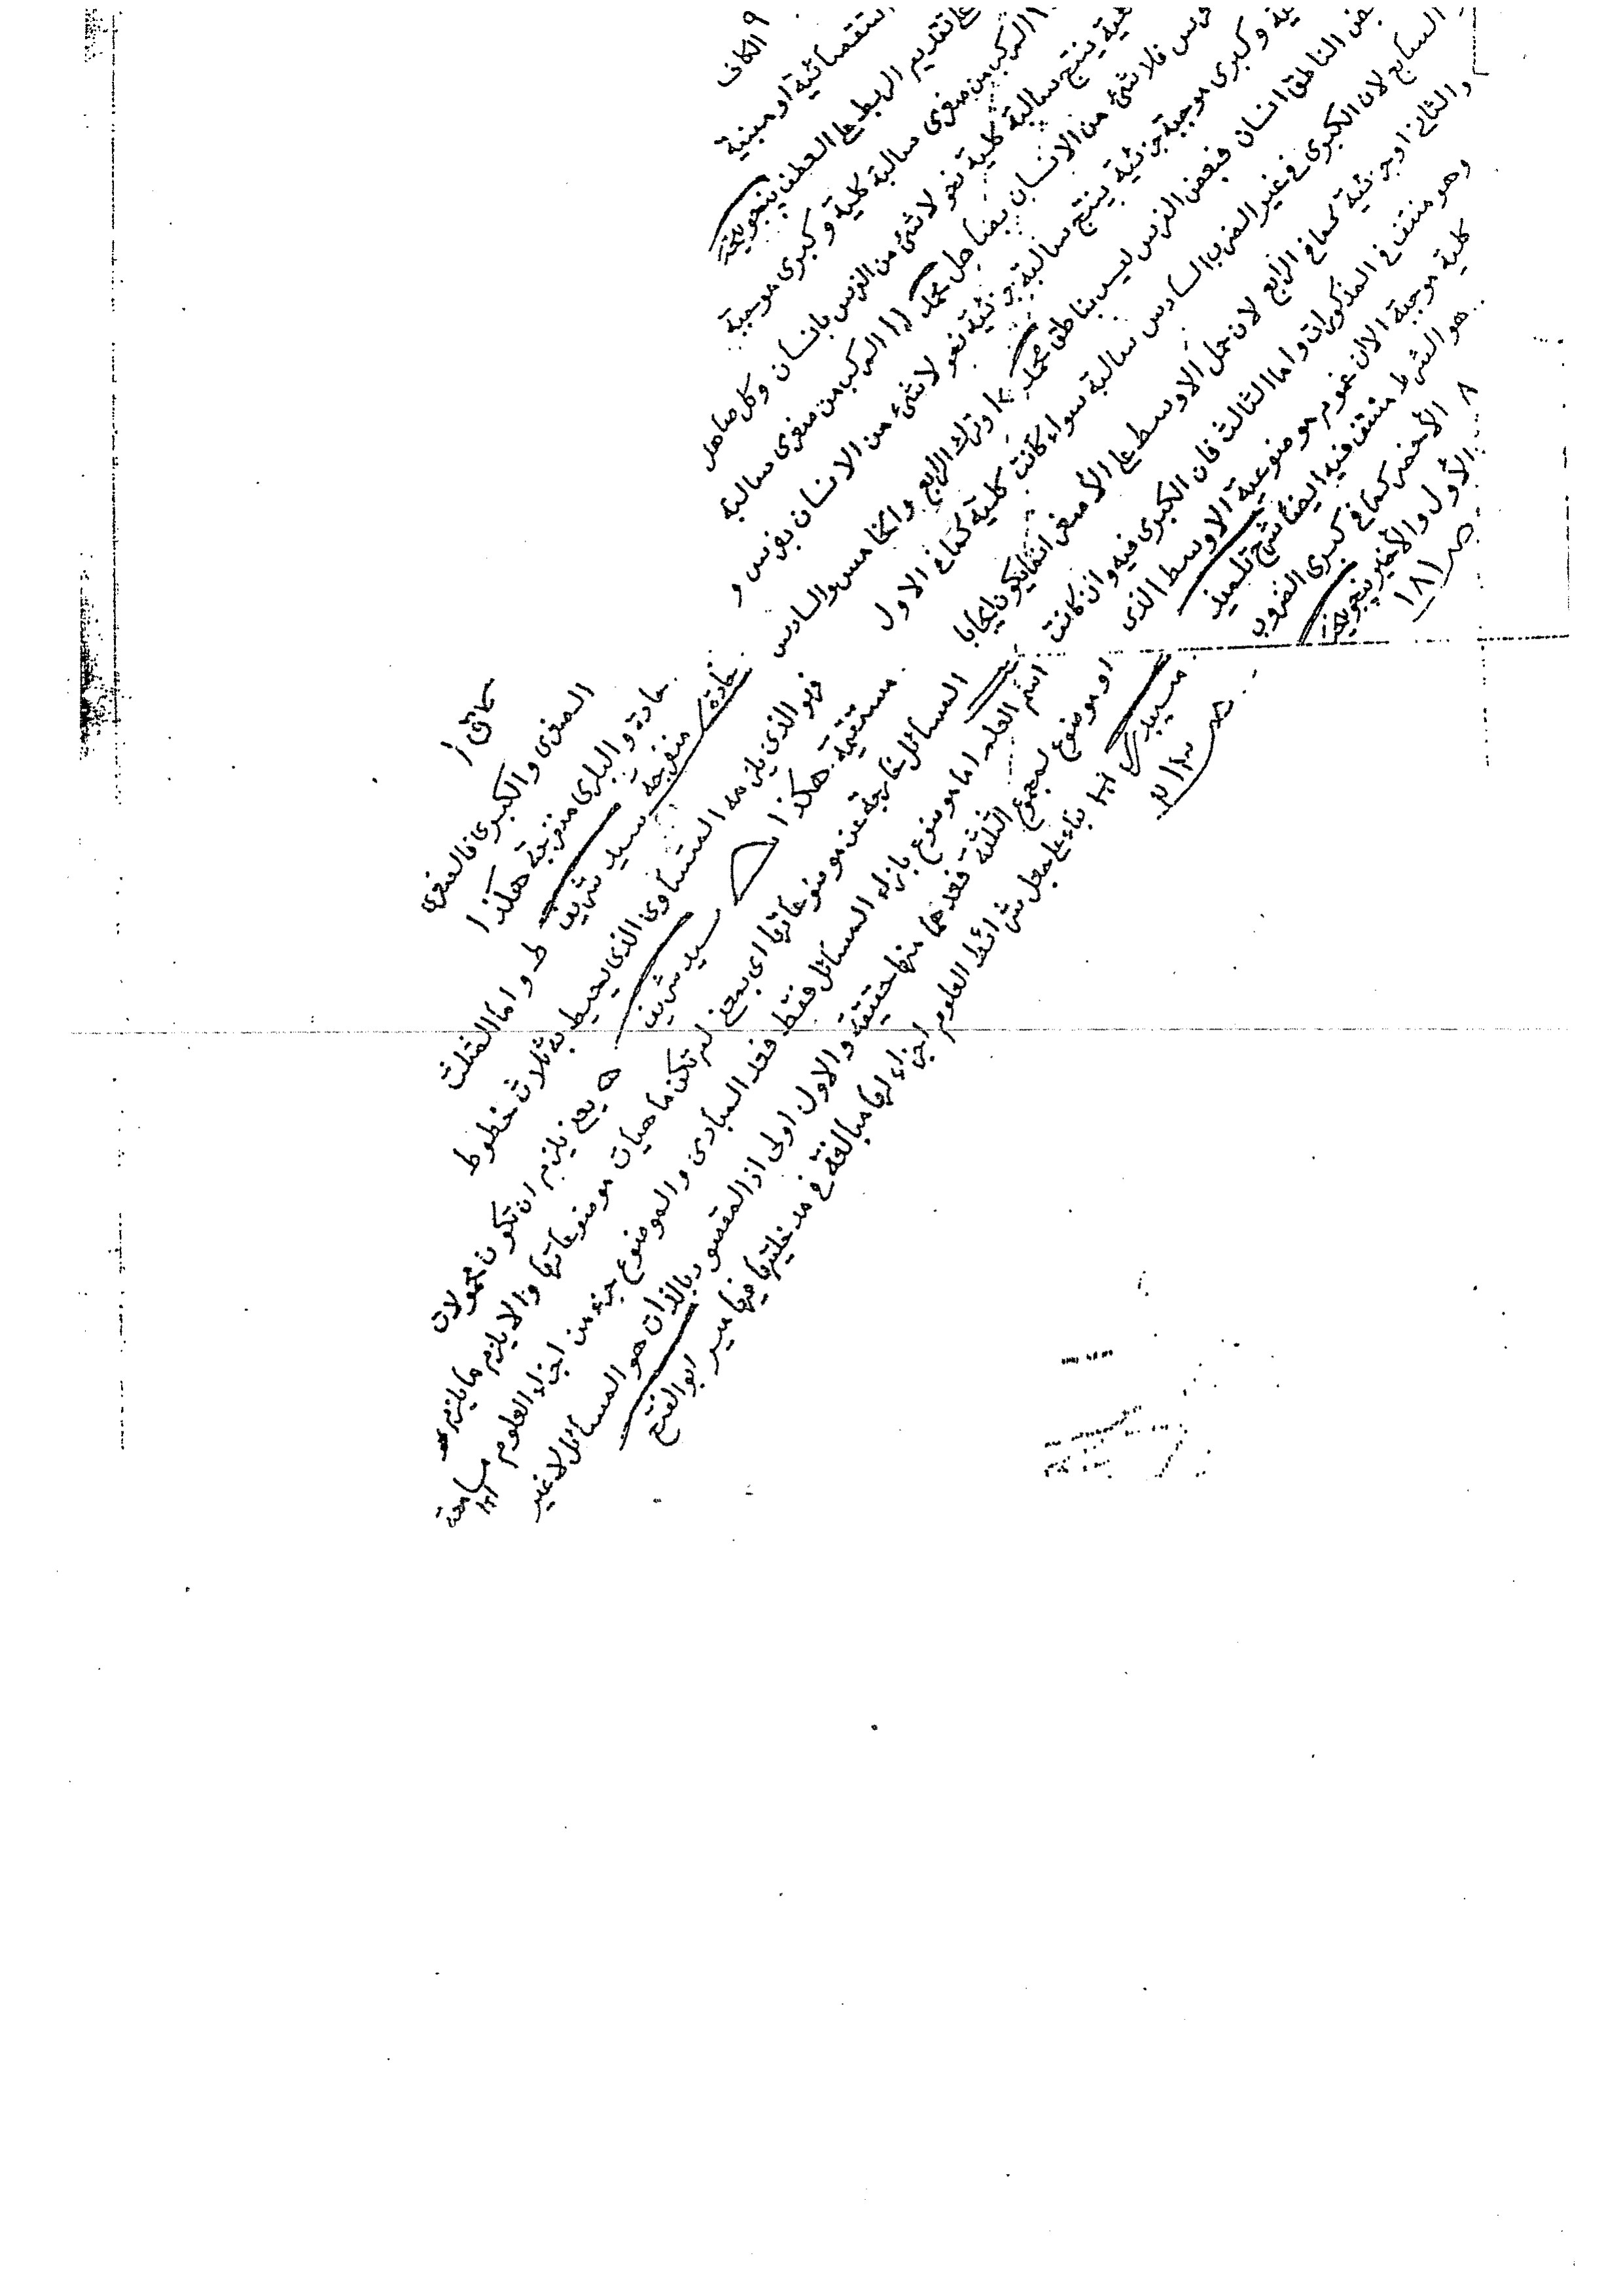 ٩ الكاف
انتقصائية او مبنية
على تقدير الربط على العطف ينجوينى
١ المركب من صغرى سالبة كلية وكبرى موجبة
كلية ينتج سالبة كلية نحو لا شئ من الفرس بانسان وكل صاهل
فرس فلا شئ من الانسان بصاهل محمد ١١ المركب من صغرى سالبة
كلية وكبرى موجبة جزئية ينتج سالبة جزئية نحو لا شئ من الانسان بفرس و
بعض الناطق انسان فبعض الفرس ليس بناطق محمد وترك الرابع والخامس والسادس
السابع لان الكبرى في غير الضرب السادس سالبة سواء كانت كلية كما في الاول
والثاني او جزئية كما في الرابع لان حمل الاوسط على الأصغر انما يكون ايجابا
وهو منتف في المذكورات واما الثالث فان الكبرى فيه وان كانت
كلية موجبة الا ان عموم موضوعية الاوسط الذى
هو الشرط منتف فيه ايضا شرح تلميذ
٨ الأخضر كما في كبرى الضروب
الأول والأخير ينجوينى
صـ ١٨١
الصغرى والكبرى فالصغرى
حادة والكبرى منفرجة هكذا
حادة منفرجة سيد شريف ط واما المثلث
فهو الذى يلزمه المتساوى الذى يحيط به ثلاث خطوط
مستقيمة هكذا سيد شريف ه يعنى يلزم ان تكون محمولات
المسائل خارجة عن موضوعاتها اى بمعنى لم تكن ماهيات موضوعاتها والا يلزم ما يلزم
اسم العلم اما موضوع بازاء المسائل فقط فعد المبادى والموضوع جزء من اجزاء العلوم مسامحة
او موضوع لمجموع الثلثة فعدهما منها حقيقة والاول اولى اذ المقصود بالذات هو المسائل لا غير
بناء على جعل شرائط العلوم اجزاء لها مبالغة في مدخليتها فيها مير ابو الفتح